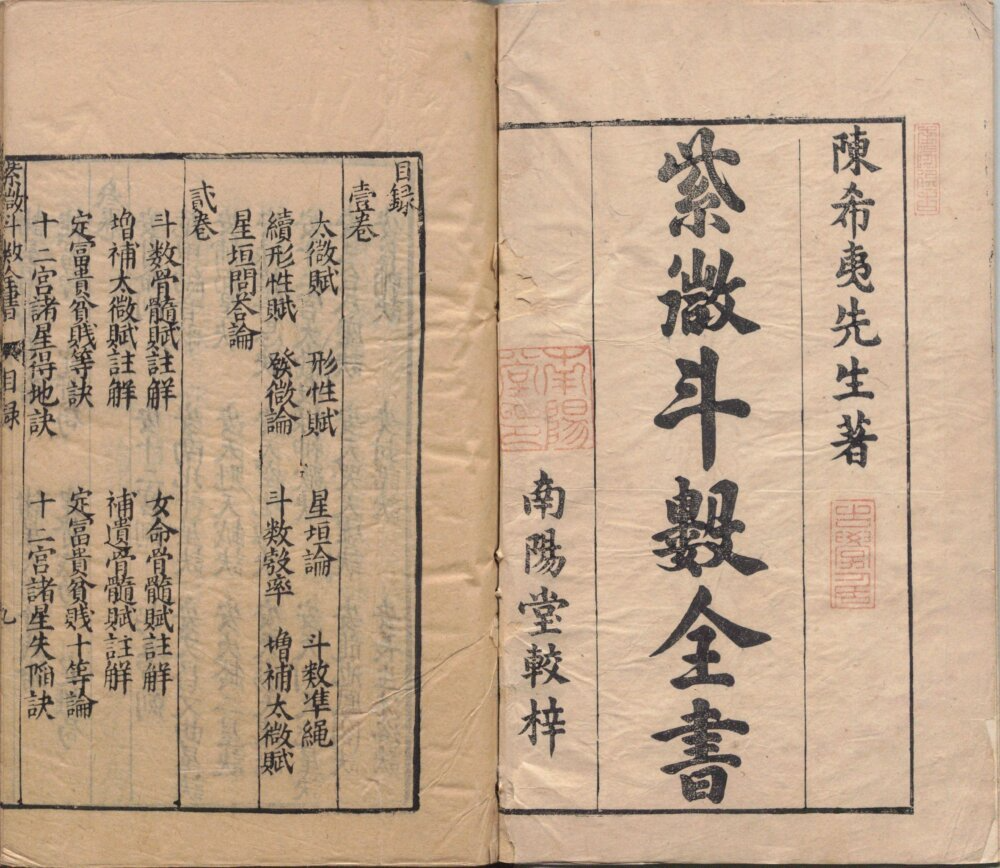 陳希夷先生著
紫微斗數全書
南陽堂較梓
南陽
堂記
目録
壹巻
太微賦　形性賦　星垣論　斗数準繩
續形性賦　發微論　斗数彀率　增補太微賦
星垣問答論
貳巻
斗数骨髓賦註解　女命骨髓賦註解
增補太微賦註解　補遺骨髓賦註解
定富貴貧賤等訣　定富貴貧賤十等論
十二宮諸星得地訣　十二宮諸星失陷訣
紫微斗数全書　目録　九